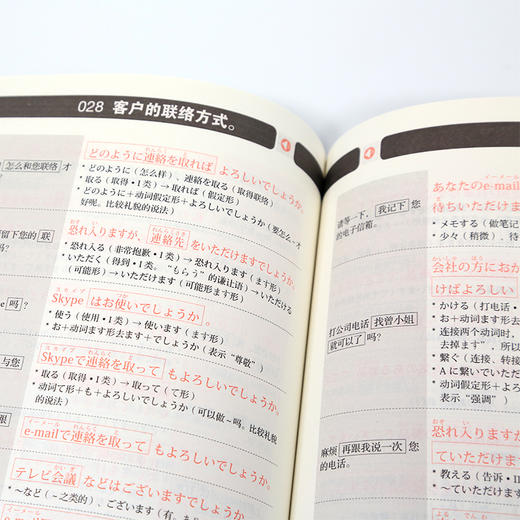 028 客户的联络方式。
怎么和您联络 才
どのように連絡を取れば よろしいでしょうか。
・どのように（怎么样）、連絡を取る（取得联络）
・取る（取得・I类）→取れば（假定形）
・どのように＋动词假定形＋よろしいでしょうか（要怎么～才
好呢。比较礼貌的说法）
留下您的 联
恐れ入りますが、連絡先 をいただけますでしょうか。
・恐れ入る（非常抱歉・I类）→恐れ入ります（ます形）
・いただく（得到・I类。“もらう”的谦让语）→いただける
（可能形）→いただけます（可能形ます形）
pe 吗？
スカイプ
Skype はお使いでしょうか。
・使う（使用・I类）→使います（ます形）
・お＋动词ます形去ます＋でしょうか（表示“尊敬”）
与您
スカイプ
Skypeで連絡を取って もよろしいでしょうか。
・取る（取得・I类）→取って（て形）
・动词て形＋も＋よろしいでしょうか（可以做～吗。比较礼貌
的说法）
跟
イーメール
e-mailで連絡を取って もよろしいでしょうか。
テレビ会議 などはございますでしょうか。
・～など（～之类的）、ございます（有。
イーメール
あなたのe-mail
待ちいただけます
请等一下，我记下 您
的电子信箱。
・メモする（做笔记
・少々（稍微）、待
会社の方にお
けばよろしい
打公司电话 找曾小姐
就可以了 吗？
・かける（打电话・
・お＋动词ます形去
・连接两个动词时，
去掉ます”，所以
・繋ぐ（连接、转接
・Aに繋いでいただ
・动词假定形＋よろ
表示“强调”）
恐れ入ります
ていただけます
麻烦 再跟我说一次 您
的电话。
・教える（告诉・II
・～ていただけます